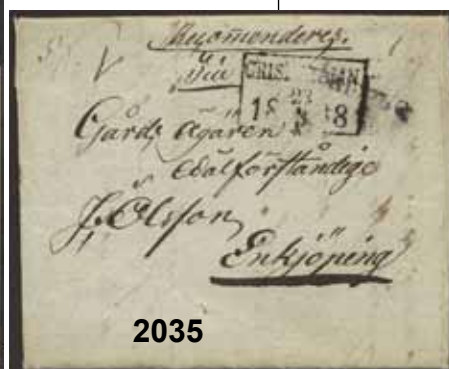 Recommenderes.
CRIS HAMN
22
18 3 8
Gårds Ägaren
Ädalförståndige
J. Olsson
Enkjöping
2035